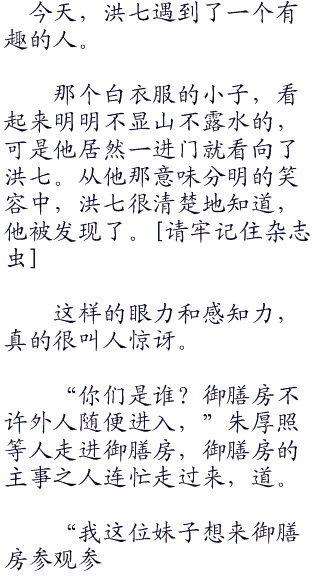 今天，洪七遇到了一个有
趣的人。
那个白衣服的小子，看
起来明明不显山不露水的，
可是他居然一进门就看向了
洪七。从他那意味分明的笑
容中，洪七很清楚地知道，
他被发现了。[请牢记住杂志
虫]
这样的眼力和感知力，
真的很叫人惊讶。
“你们是谁？御膳房不
许外人随便进入，”朱厚照
等人走进御膳房，御膳房的
主事之人连忙走过来，道。
“我这位妹子想来御膳
房参观参